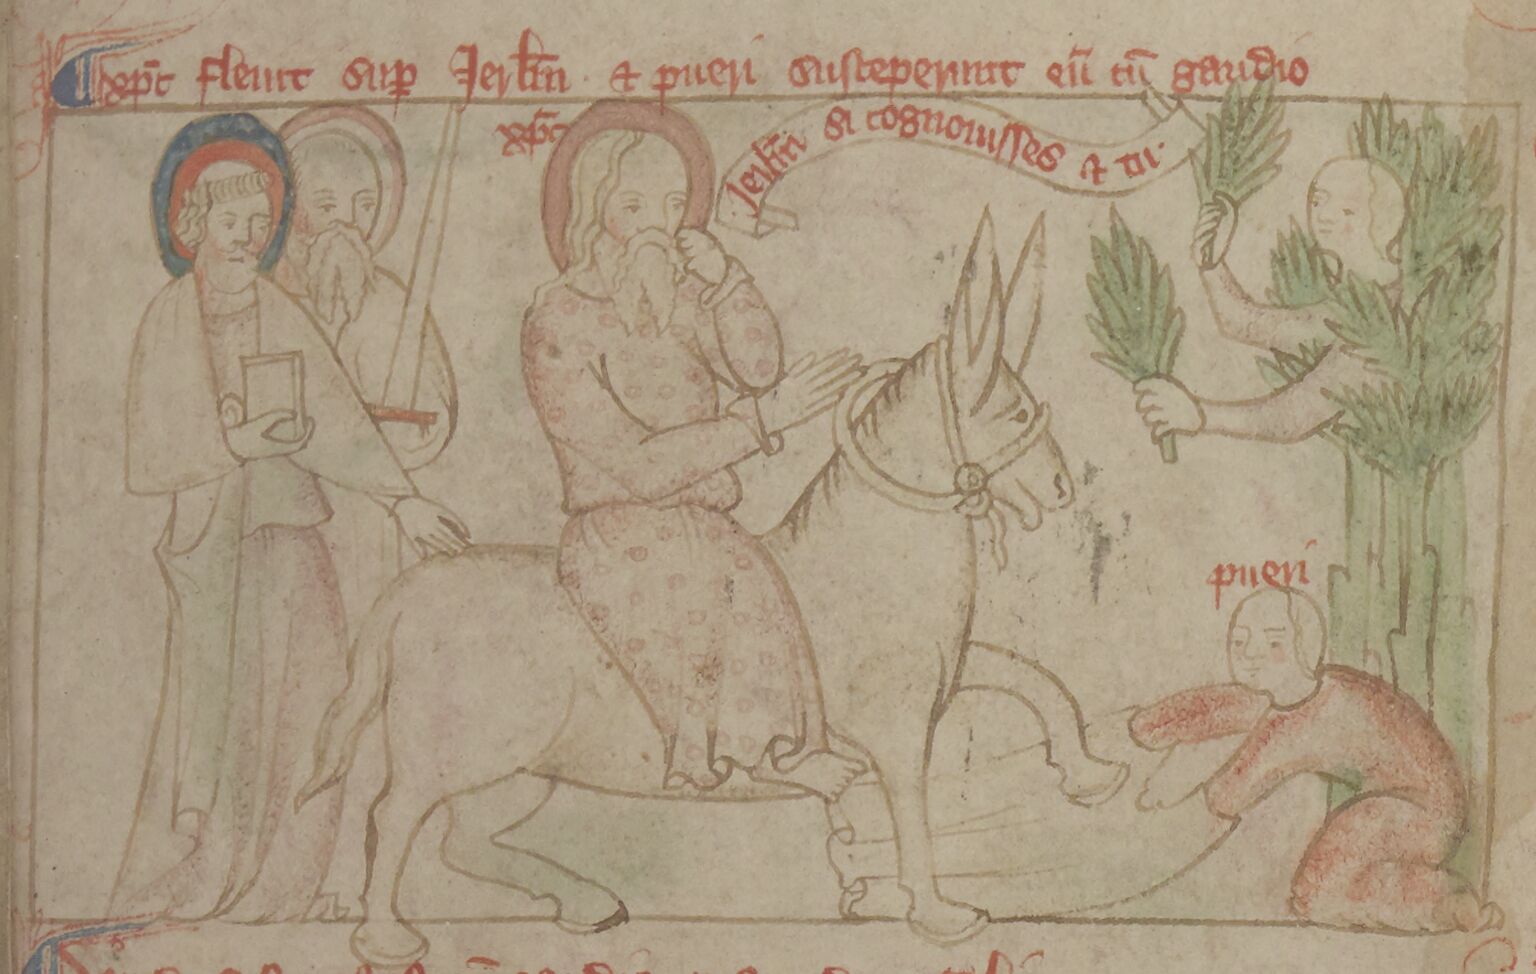 xp̄c flevit sup Jerlm̄ · ⁊ pueri susceperunt eū cū gaudio
xp̄c
Jerlm̄ si cognouisses ⁊ tu ·
pueri